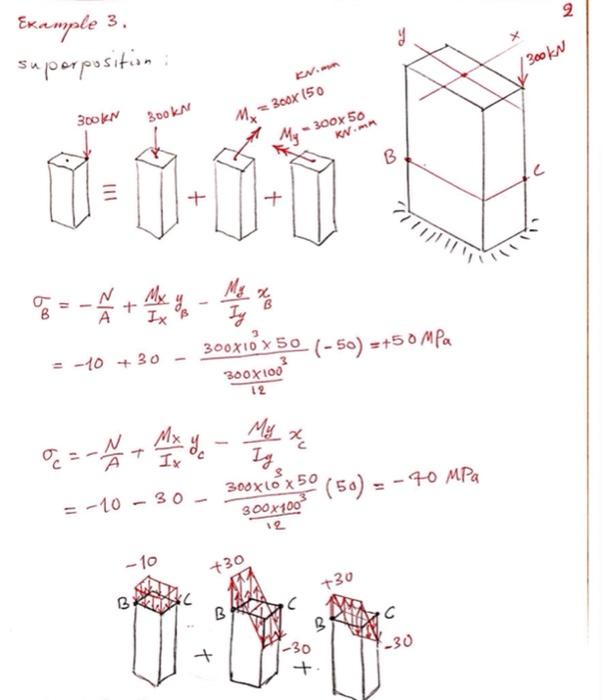 2
Example 3.
superposition:
y
x
300kN
300kN
300kN
KN.mm
Mx = 300x150
My = 300x50
KN.mm
B
C
≡ + +
σB = - N/A + Mx/Ix yB - My/Iy xB
= -10 + 30 - (300x10^3 x 50)/(300x100^3/12) (-50) = +50 MPa
σC = - N/A + Mx/Ix yC - My/Iy xC
= -10 - 30 - (300x10^3 x 50)/(300x100^3/12) (50) = -70 MPa
-10
+30
+30
B C
B C
B C
-30
-30
+ +